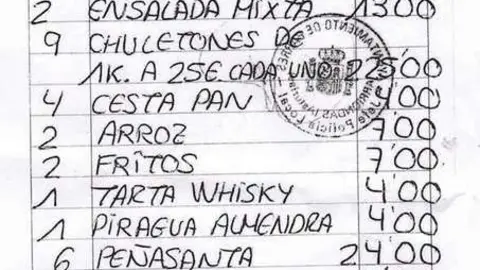 2 ENSALADA MIXTA 13'00
9 CHULETONES DE
1K. A 25€ CADA UNO 225'00
4 CESTA PAN '00
2 ARROZ 7'00
2 FRITOS 7'00
1 TARTA WHISKY 4'00
1 PIRAGUA ALMENDRA 4'00
6 PEÑASANTA 24'00